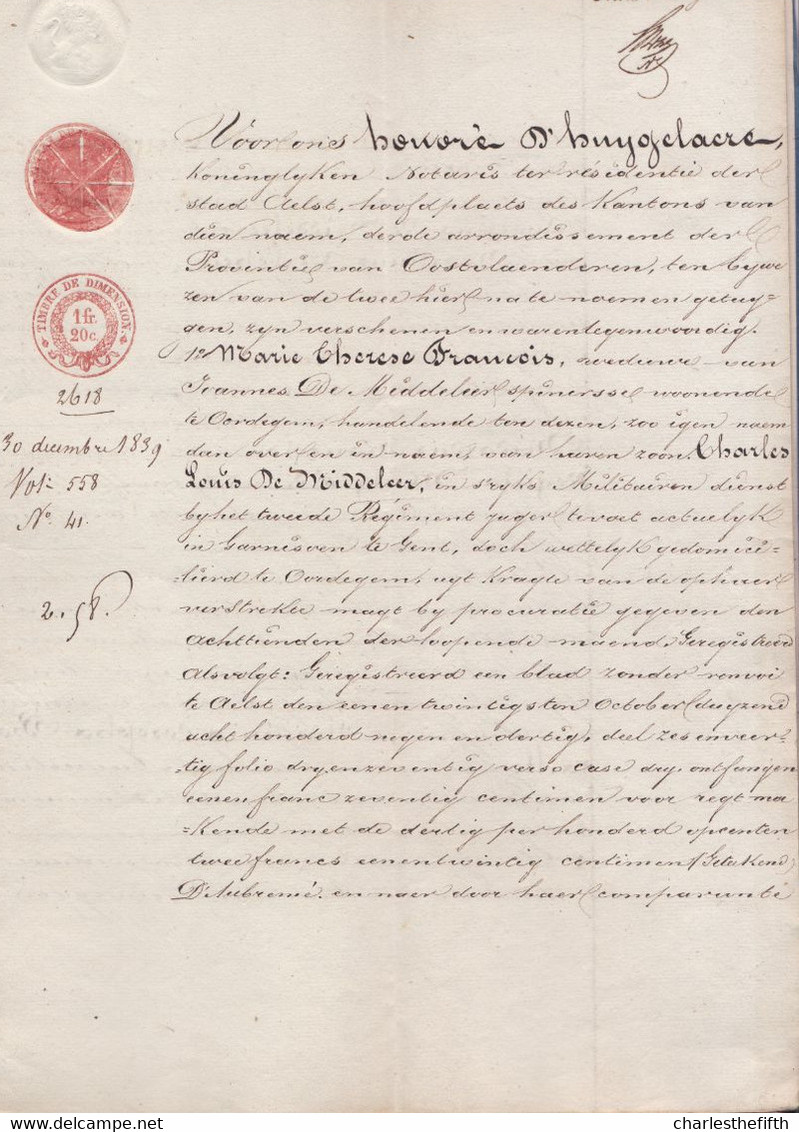 Voor ons honoré D'huygelaere,
Koninglyken Notaris ter residentie der
stad Aelst, hoofdplaets des Kantons van
dien naem, derde arrondissement der
Provintie van Oostvlaenderen, ten bywe
zen van de twee hier na te noemen getuy-
gen, zyn verschenen en waren tegenwoordig.
1º Marie Therese Francois, weduwe van
Joannes De Middeleer spinersse woonende
te Oordegem, handelende ten dezen, zoo igen naem
dan over en in naem, van haren zoon, Charles
Louis De Middeleer, in s'ryks Militairen dienst
by het tweede Régiment jager te voet actuelyk
in Garnisoen te Gent, doch wettelyk gedomici-
-lierd te Oordegem, uyt Kragte van de ophaer
verstrekte magt by procuratie gegeven den
achttienden der loopende maend, Geregistreerd
alsvolgt: Geregistreerd een blad zonder renvoi
te Aelst den eenen twintigsten October duyzend
acht honderd negen en dertig, deel zes en veer-
-tig folio dry en zeventig verso case dry, ontfangen
eenen franc zeventig centimen voor regt ma
-kende met de dertig per honderd opcenten
twee francs eenentwintig centimen / Getekend
D'Aubremé. en naer door haer comparante
TIMBRE DE DIMENSION.
1 fr.
20 c.
2618
30 decembre 1839
Vol: 558
Nº 41.
2.58.
charlesthefifth